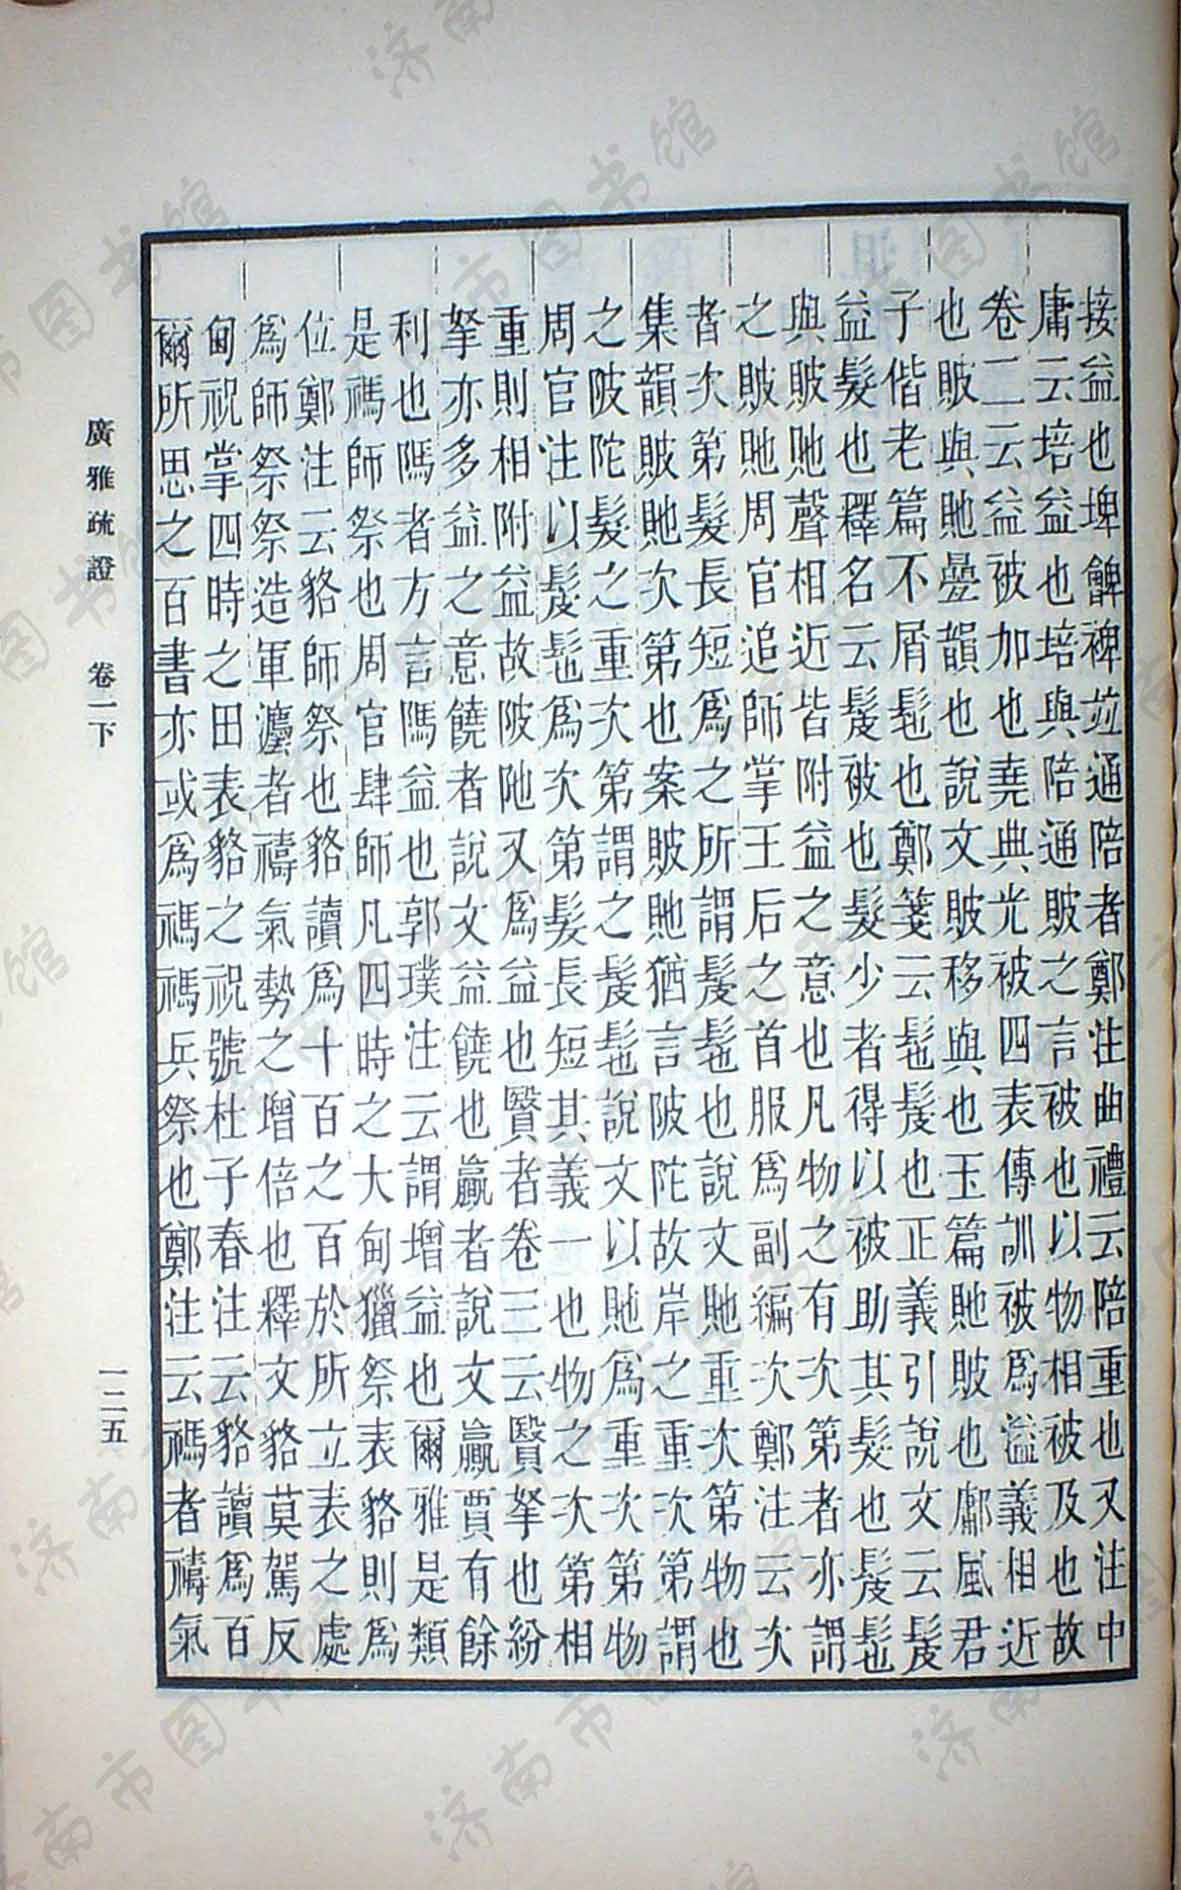 接益也埤䚜裨竝通陪者鄭注曲禮云陪重也又注中
庸云培益也培與陪通貱之言被也以物相被及也故
卷二云益被加也堯典光被四表傳訓被爲溢義相近
也貱與貤疊韻也說文貱移與也玉篇貤貱也鄘風君
子偕老篇不屑髢也鄭箋云髢髲也正義引說文云髲
益髮也釋名云髲被也髮少者得以被助其髮也髲髢
與貱貤聲相近皆附益之意也凡物之有次第者亦謂
之貱貤周官追師掌王后之首服爲副編次鄭注云次
者次第髮長短爲之所謂髲髢也說文貤重次第物也
集韻貱貤次第也案貱貤猶言陂陀故岸之重次第謂
之陂陀髮之重次第謂之髲髢說文以貤爲重次第物
周官注以髲髢爲次第髮長短其義一也物之次第相
重則相附益故陂阤又爲益也贀者卷三云贀拏也紛
拏亦多益之意饒者說文益饒也贏者說文贏賈有餘
利也䧞者方言䧞益也郭璞注云謂增益也爾雅是類
是禡師祭也周官肆師凡四時之大甸獵祭表貉則爲
位鄭注云貉師祭也貉讀爲十百之百於所立表之處
爲師祭祭造軍灋者禱氣勢之增倍也釋文貉莫駕反
甸祝掌四時之田表貉之祝號杜子春注云貉讀爲百
爾所思之百書亦或爲禡禡兵祭也鄭注云禡者禱氣
廣雅疏證 卷一下
一二五
济南市图书馆